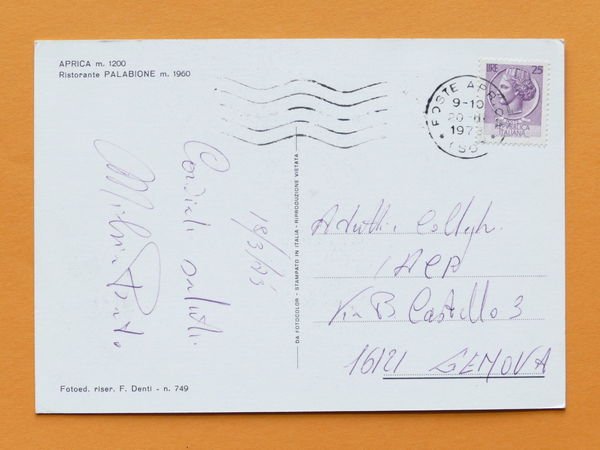 APRICA m. 1200
Ristorante PALABIONE m. 1960
LIRE 25
REPUBBLICA
ITALIANA
POSTE APRICA
9-10
1973
Cordiali saluti
18/3/73
DA FOTOCOLOR - STAMPATO IN ITALIA - RIPRODUZIONE VIETATA
A tutti i Colleghi
IACP
Via B Castello 3
16121 GENOVA
Fotoed. riser. F. Denti - n. 749